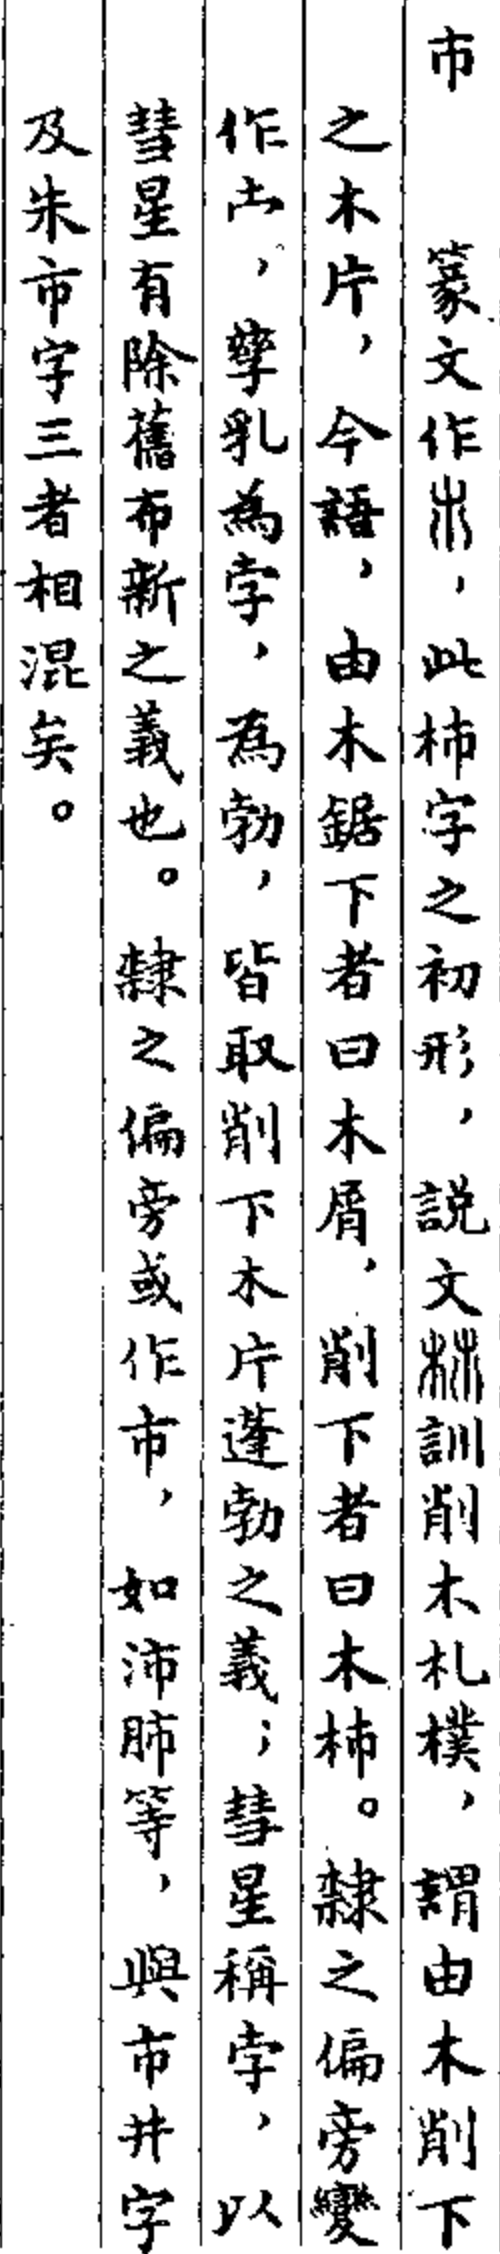 巿　篆文作𣎵，此柿字之初形，説文𣏟訓削木札樸，謂由木削下
之木片，今語，由木鋸下者曰木屑，削下者曰木柿。隸之偏旁變
作𠫓，孳乳為孛，為勃，皆取削下木片蓬勃之義；彗星稱孛，以
彗星有除舊布新之義也。隸之偏旁或作市，如沛肺等，與市井字
及朱巿字三者相混矣。